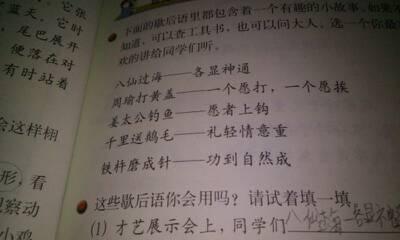 ，它张
蓝天。它时
，尾巴展开
便落在对
有时站着
会这样栩
形，看
观察动
小鸡
下面的歇后语里都包含着一个有趣的小故事，如果不
知道，可以查工具书，也可以问大人。选一个你最
欢的讲给同学们听。
八仙过海——各显神通
周瑜打黄盖——一个愿打，一个愿挨
姜太公钓鱼——愿者上钩
千里送鹅毛——礼轻情意重
铁杵磨成针——功到自然成
这些歇后语你会用吗？请试着填一填
(1) 才艺展示会上，同学们八仙过海—各显